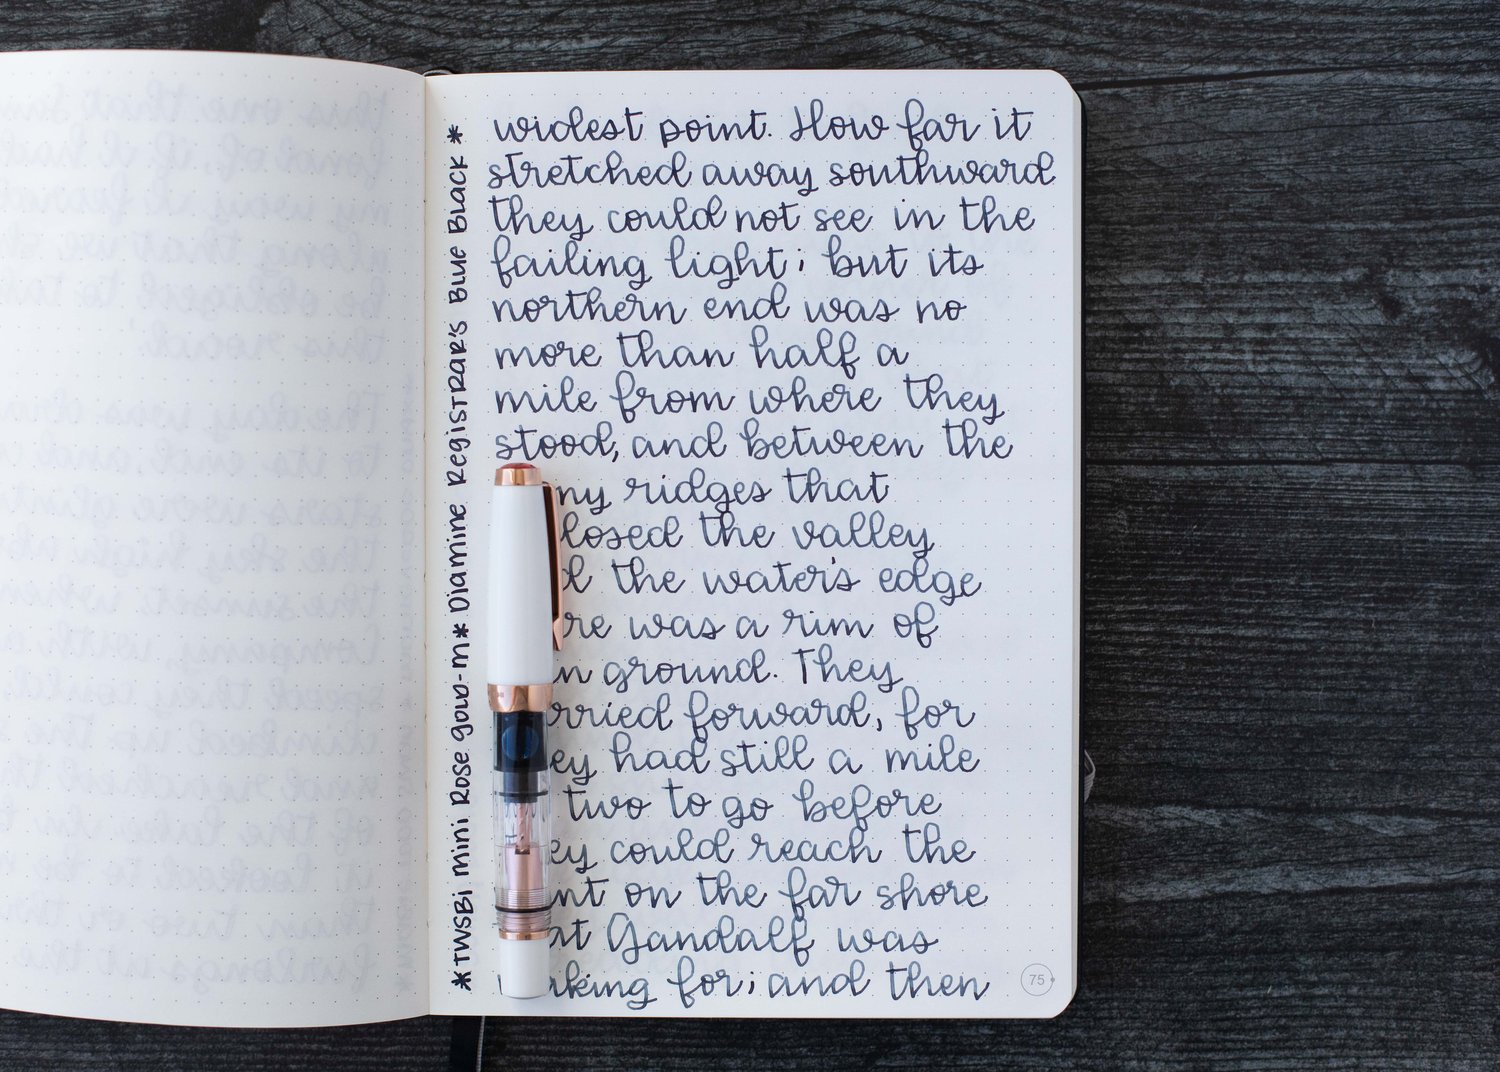 *TWSBI Mini Rose Gold-M* Diamine Registrar's Blue Black *
widest point. How far it
stretched away southward
they could not see in the
failing light; but its
northern end was no
more than half a
mile from where they
stood, and between the
ny ridges that
losed the valley
d the water's edge
re was a rim of
n ground. They
rried forward, for
ey had still a mile
two to go before
ey could reach the
nt on the far shore
at Gandalf was
king for; and then
75